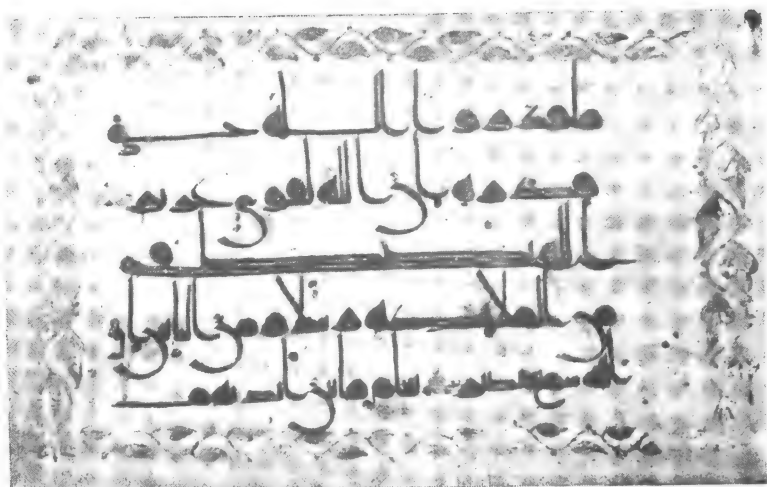 ما قدروا الله حق
قدره ان الله لقوى عزيز
الله يصطفى
من الملئكة رسلا ومن الناس ان
الله سميع بصير يعلم ما بين ايديهم